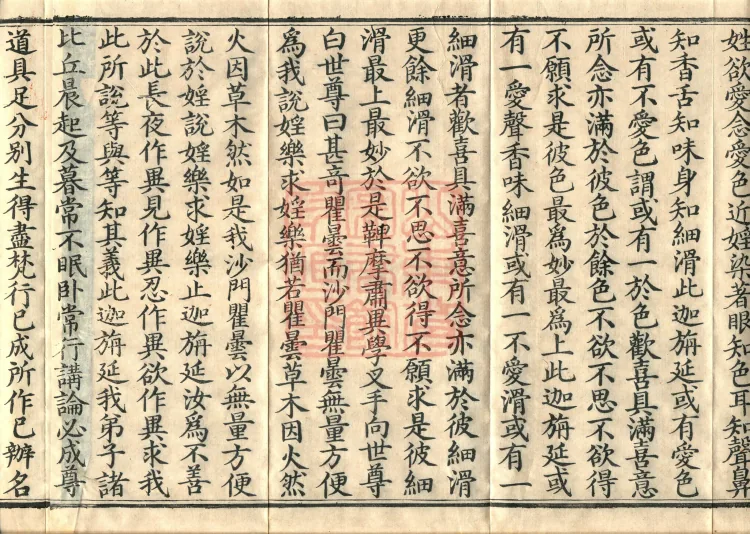 婬欲愛念愛色近婬染著眼知色耳知聲鼻
知香舌知味身知細滑此迦旃延或有愛色
或有不愛色謂或有一於色歡喜具滿喜意
所念亦滿於彼色於餘色不欲不思不欲得
不願求是彼色最爲妙最爲上此迦旃延或
有一愛聲香味細滑或有一不愛滑或有一
細滑者歡喜具滿喜意所念亦滿於彼細滑
更餘細滑不欲不思不欲得不願求是彼細
滑最上最妙於是鞞摩肅異學叉手向世尊
白世尊曰甚奇瞿曇而沙門瞿曇無量方便
爲我說婬樂求婬樂猶若瞿曇草木因火然
火因草木然如是我沙門瞿曇以無量方便
說於婬說婬樂求婬樂止迦旃延汝爲不善
於此長夜作異見作異忍作異欲作異求我
此所說等與等知其義此迦旃延我弟子諸
比丘晨起及暮常不眠卧常行講論必成尊
道具足分别生得盡梵行已成所作已辦名